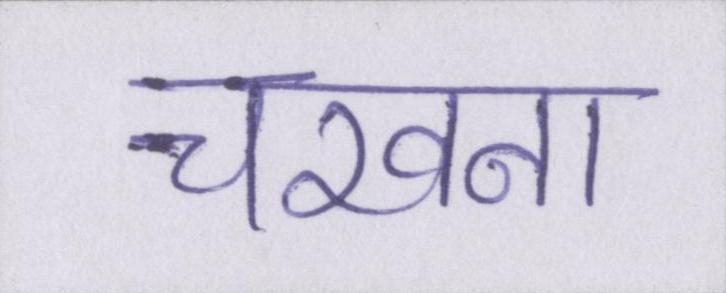 चखना